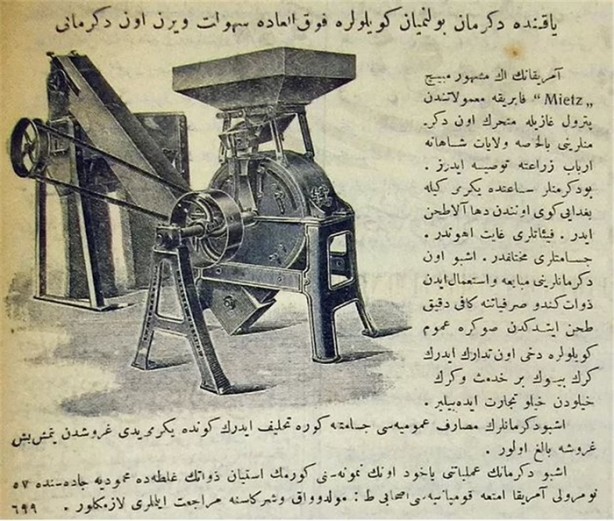 ياقيننده دكرمان بولنميان كويلولره فوق العاده سهولت ويرن اون دكرمانى
آمريقانك اك مشهور مييچ
„Mietz“ فابريقه معمولاتندن
پترول غازيله متحرك اون دكر-
منلرينى بالخصه ولايات شاهانه
ارباب زراعته توصيه ايدرز .
بودكرمنلر ساعتده يكرمى كيله
بغدايى كوى اونندن دها آلا طحن
ايدر . فيئاتلرى غايت اهوندر .
جسامتلرى مختلفدر . اشبو اون
دكرمانلرينى مبايعه واستعمال ايدن
ذوات كندو صرفياتنه كافى دقيق
طحن ايتدكدن صوكره عموم
كويلولره دخى اون تدارك ايدرك
كرك بيوك بر خدمت وكرك
خيلودن خيلو تجارت ايده بيلير .
اشبودكرمانلرك مصارف عموميه سى جسامتنه كوره تحليف ايدرك كونده يكرمى يدى غروشدن يتمش بش
غروشه بالغ اولور .
اشبو دكرمانك عملياتى ياخود اونك نمونه سنى كورمك استيان ذواتك غلطه ده محموديه جاده سنده ٥٧
نومرولى آمريقا امتعه قومپانيه سى اصحابى ط : مولدوواق وشركاسنه مراجعت ايلملرى لازمكلور . ٦٩٩